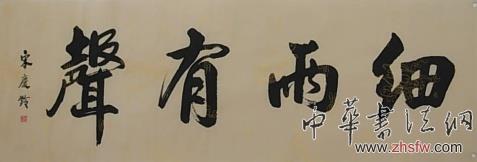 細雨有聲
宋慶齡
中華書法網
www.zhsfw.com